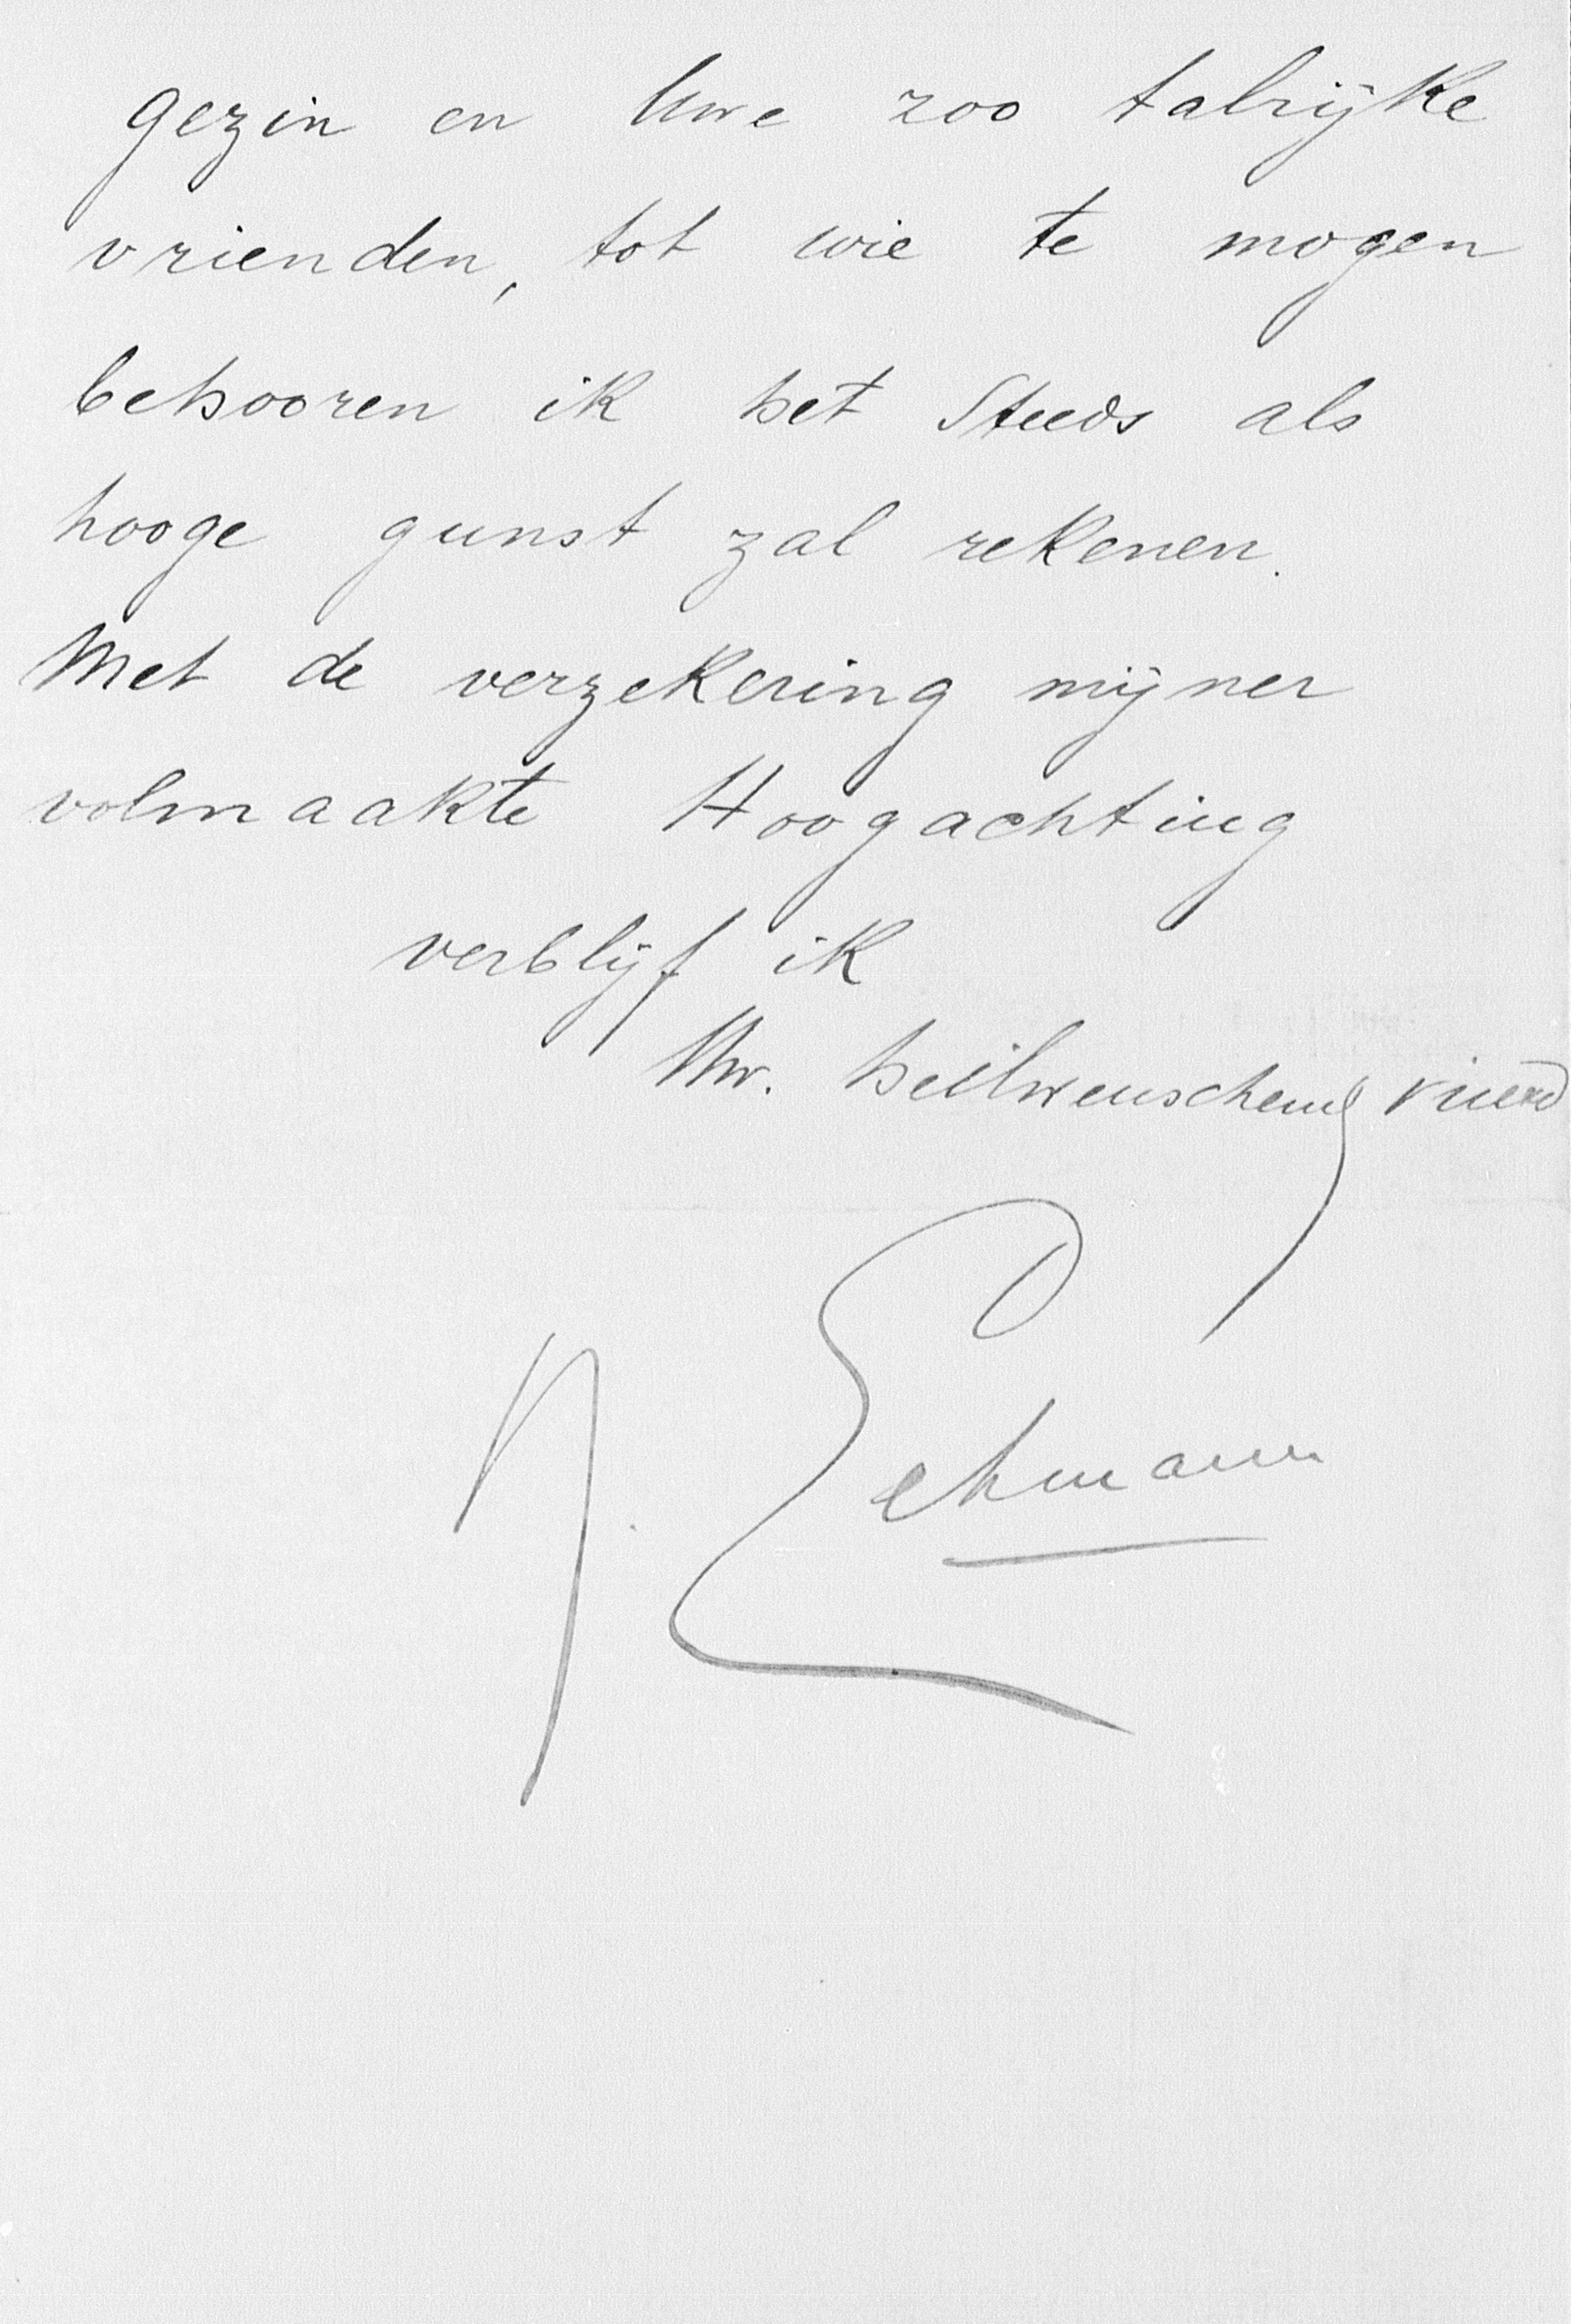 gezin en Uwe zoo talrijke
vrienden, tot wie te mogen
behooren ik het steeds als
hooge gunst zal rekenen.
Met de verzekering mijner
volmaakte Hoogachting
verblijf ik
Uw. heilwenschend vriend